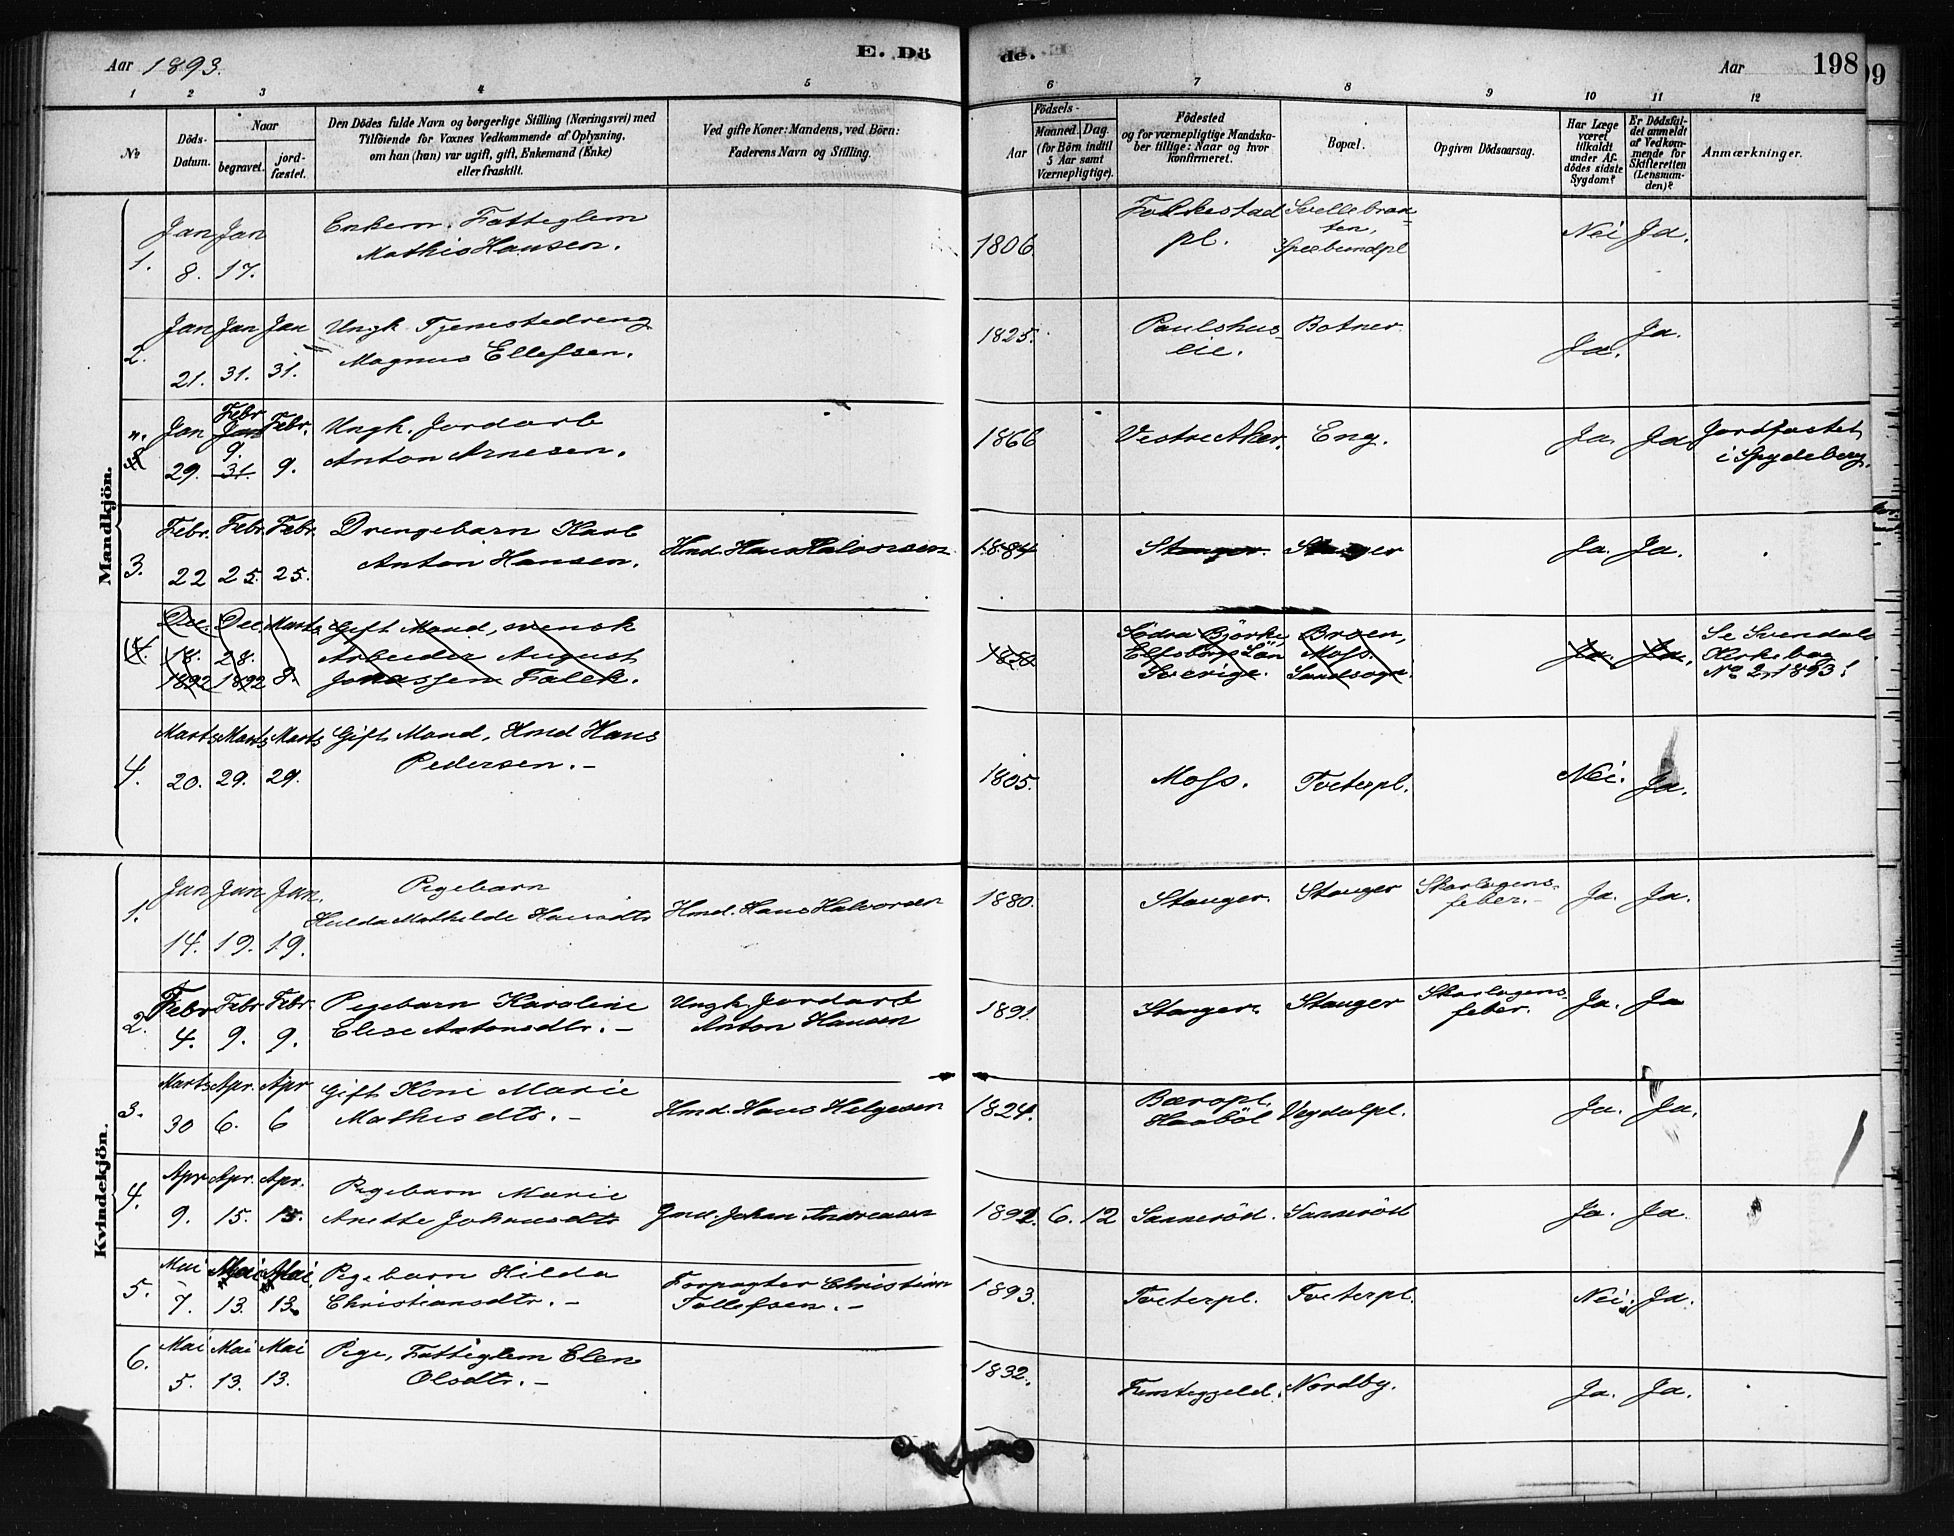 Aar 1893.
E. Dö
de.
Aar
198
1 2 3 4 5 6 7 8 9 10 11 12
No
Döds-
Datum.
Naar
begravet.
jord-
fæstet.
Den Dödes fulde Navn og borgerlige Stilling (Næringsvei) med
Tilföiende for Voxnes Vedkommende af Oplysning,
om han (hun) var ugift, gift, Enkemand (Enke)
eller fraskilt.
Ved gifte Koner: Mandens, ved Börn:
Faderens Navn og Stilling.
Födsels-
Aar
Maaned. Dag.
(for Börn indtil
5 Aar samt
Værnepligtige).
Födested
og for værnepligtige Mandska-
ber tillige: Naar og hvor
konfirmeret.
Bopæl.
Opgiven Dödsaarsag.
Har Læge
været
tilkaldt
under Af-
dödes sidste
Sygdom?
Er Dödsfal-
det anmeldt
af Vedkom-
mende for
Skifteretten
(Lensman-
den)?
Anmærkninger.
Mandkjön.
1. Jan 8. Jan 17.
Enkem. Fattiglem
Mathis Hansen.
1806 Folkestad
pl.
Nei Ja.
2. Jan 21. Jan 31. Jan 31.
Ungk. Tjenestedreng
Magnus Ellefsen.
1825. Paulshus
eie. Botner. Ja. Ja.
Jan 29. Febr 9. Jan 31. Febr. 9.
Ungk. Jordarb
Anton Arnesen.
1866 Vestre Aker. Eng. Ja. Ja
Jordfæstet
i Spydeberg.
3. Febr. 22 Febr. 25. Febr. 25.
Drengebarn Karl
Anton Hansen.
Hmd. Hans Halvorsen
1884 Stanger. Stanger Ja. Ja.
4. Dec. 18. 1892 Dec. 28. 1892 Marts 8.
Gift Mand, svensk
Arbeider August
Jonassen Falck.
1850 Södra Björke,
Elfsborgs Län
Sverige.
Broen,
Moss.
Landsogn.
Ja. Ja.
Se Svendals
Kirkebog
No 2, 1893!
4. Marts 20. Marts 29. Marts 29.
Gift Mand, Hmd Hans
Pedersen. -
1805. Moss. Tveterpl. Nei. Ja.
Kvindekjön.
1. Jan 14. Jan 19. Jan. 19.
Pigebarn
Hulda Mathilde Hansdtr
Hmd. Hans Halvorsen
1880. Stanger. Stanger Skarlagens-
feber. - Ja. Ja.
2. Febr 4. Febr 9. Febr. 9.
Pigebarn Karoline
Elise Antonsdtr. -
Ungk. Jordarb
Anton Hansen
1891. Stanger. Stanger Skarlagens-
feber. Ja. Ja
3. Marts 30 Apr. 6. Apr 6
Gift Kone Marie
Mathisdtr. -
Hmd. Hans Helgesen
1824. Bæropl.
Haabøl Vegdalpl. Ja. Ja.
4. Apr 9. Apr. 15. Apr. 15.
Pigebarn Marie
Anette Johansdtr
Gmd. Johan Andreasen
1892. 6. 12 Sanneröd. Sanneröd Ja. Ja.
5. Mai 7. Mai 13. Mai 13.
Pigebarn Hilda
Christiansdtr. -
Forpagter Christian
Tollefsen. -
1893. Tveterpl. Tveterpl. Nei. Ja.
6. Mai 5. Mai 13. Mai 13.
Pige, Fattiglem Elen
Olsdtr. -
1832. Nordby. Ja. Ja.